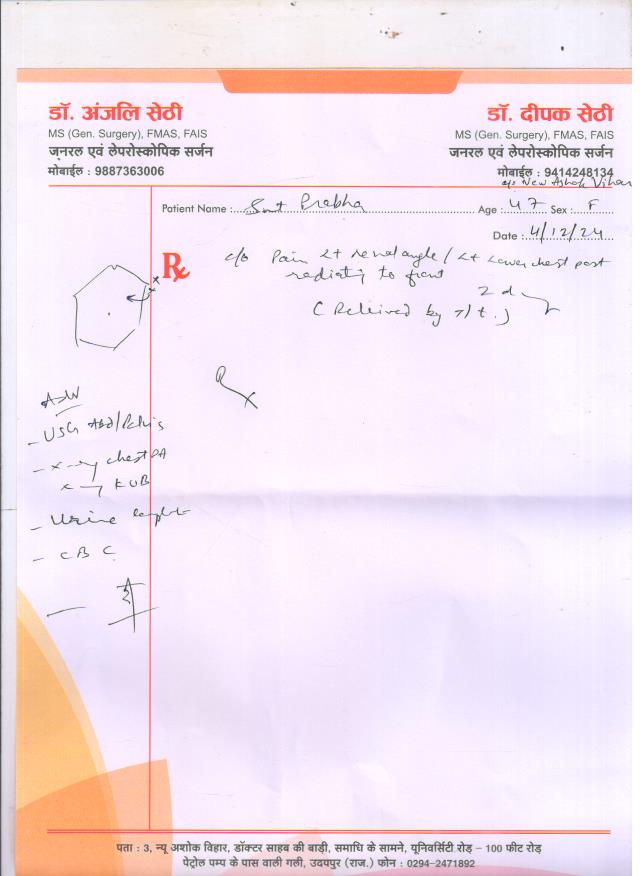 डॉ. अंजलि सेठी
MS (Gen. Surgery), FMAS, FAIS
जनरल एवं लेपरोस्कोपिक सर्जन
मोबाईल : 9887363006
डॉ. दीपक सेठी
MS (Gen. Surgery), FMAS, FAIS
जनरल एवं लेपरोस्कोपिक सर्जन
मोबाईल : 9414248134
c/o New Ashok Vihar
Patient Name : Smt Prabha Age : 47 Sex : F
Date : 4/12/24
Rx
c/o Pain Lt renal angle / Lt Lower chest post
radiating to front
2 d
( Relieved by T/t. )
Rx
Adv
- USG Abd/Pelvis
- x-ray chest PA
x-ray KUB
- Urine
- CBC
पता : 3, न्यू अशोक विहार, डॉक्टर साहब की बाड़ी, समाधि के सामने, यूनिवर्सिटी रोड़ – 100 फीट रोड़
पेट्रोल पम्प के पास वाली गली, उदयपुर (राज.) फोन : 0294-2471892